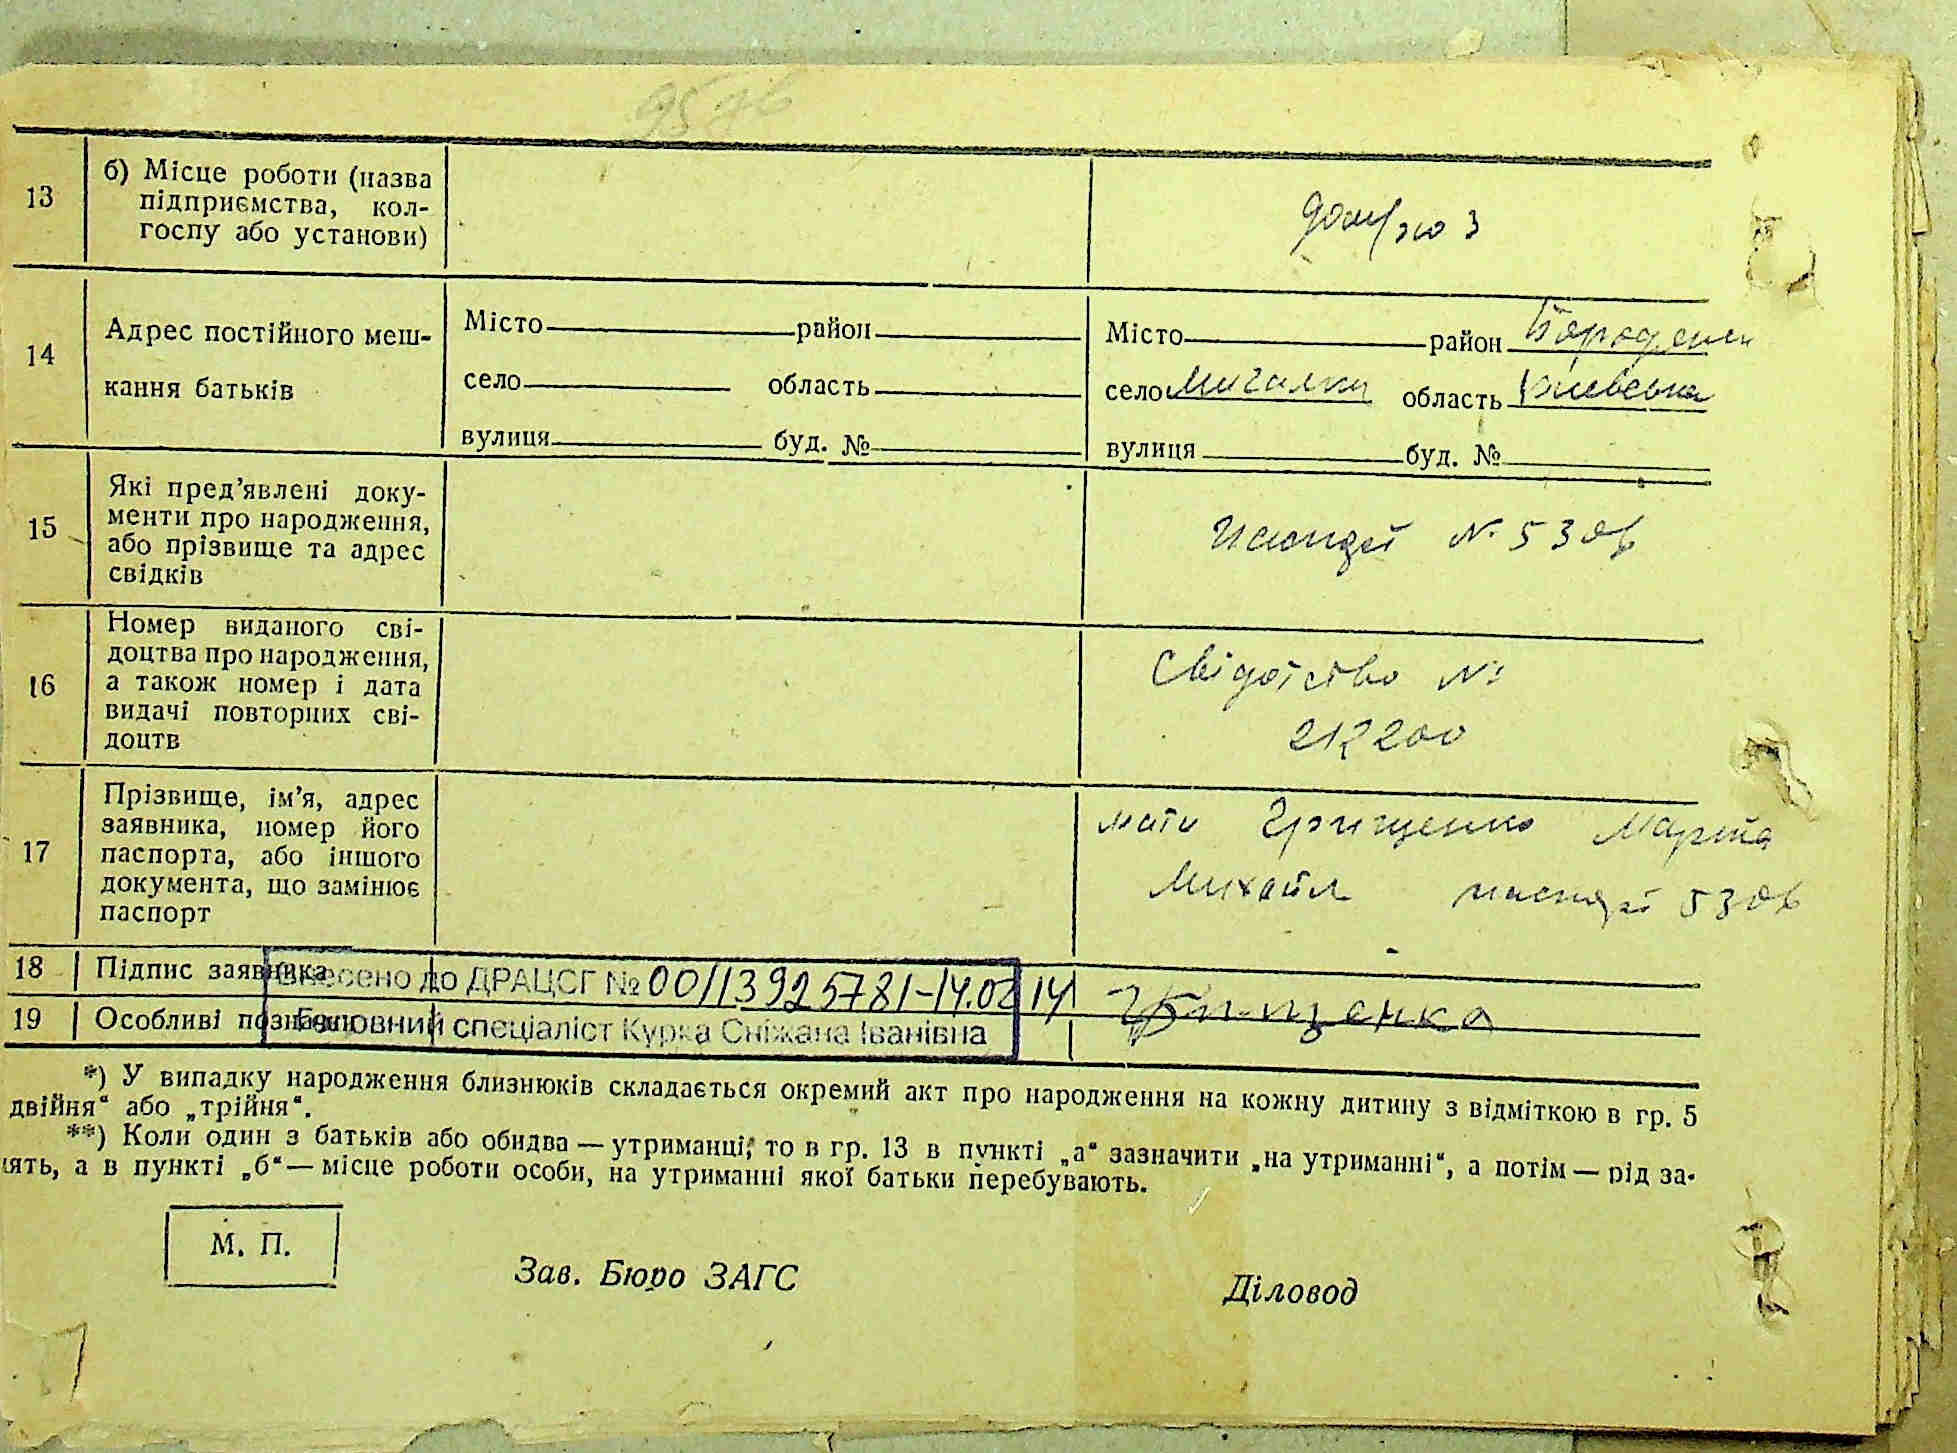 13
б) Місце роботи (назва
підприємства, кол-
госпу або установи)
14
Адрес постійного меш-
кання батьків
Місто район
село область
вулиця буд. №
Місто район Бородянськ
село Мигалки область Київська
вулиця буд. №
15
Які пред'явлені доку-
менти про народження,
або прізвище та адрес
свідків
№ 530
16
Номер виданого сві-
доцтва про народження,
а також номер і дата
видачі повторних сві-
доцтв
Свідотство №
212200
17
Прізвище, ім'я, адрес
заявника, номер його
паспорта, або іншого
документа, що замінює
паспорт
мати Грищенко Марія
Михайл 530
18 Підпис заявника
Внесено до ДРАЦСГ № 00113925781-14.02.14
Грищенка
19 Особливі позначки
Головний спеціаліст Курка Сніжана Іванівна
*) У випадку народження близнюків складається окремий акт про народження на кожну дитину з відміткою в гр. 5
двійня“ або „трійня“.
**) Коли один з батьків або обидва — утриманці, то в гр. 13 в пункті „а“ зазначити „на утриманні“, а потім — рід за-
ять, а в пункті „б“ — місце роботи особи, на утриманні якої батьки перебувають.
М. П.
Зав. Бюро ЗАГС
Діловод